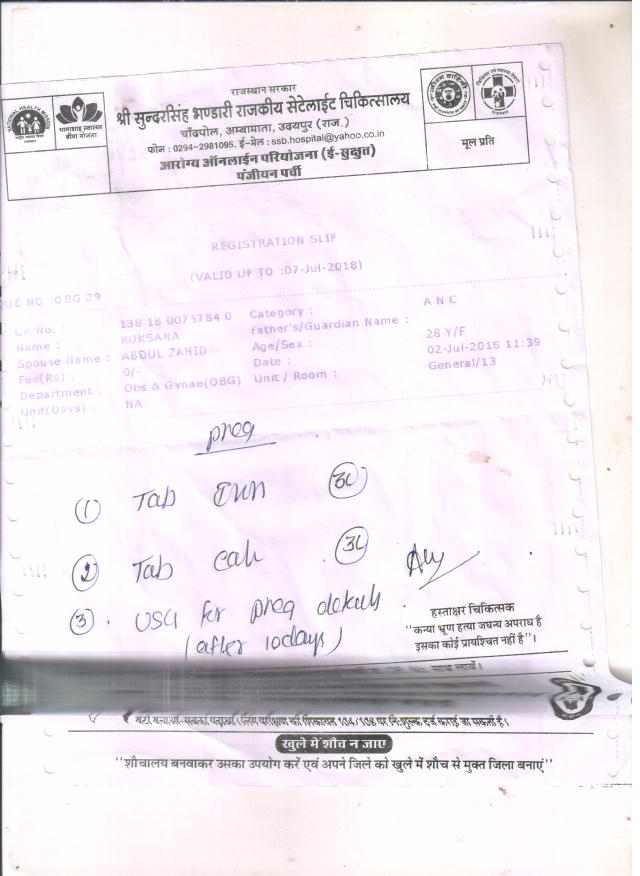 राजस्थान सरकार
श्री सुन्दरसिंह भण्डारी राजकीय सेटेलाईट चिकित्सालय
चाँदपोल, अम्बामाता, उदयपुर (राज.)
फोन : 0294-2981095, ई-मेल : ssb.hospital@yahoo.co.in
आरोग्य ऑनलाईन परियोजना (ई-सुश्रुत)
पंजीयन पर्ची
मूल प्रति
REGISTRATION SLIP
(VALID UP TO :07-Jul-2018)
UE NO :OBG 29
CR No. : 138 18 0075784 0 Category : A N C
Name : RUKSANA Father's/Guardian Name :
Spouse Name : ABDUL ZAHID Age/Sex : 28 Y/F
Fee(Rs) : 0/- Date : 02-Jul-2018 11:39
Department : Obs & Gynae(OBG) Unit / Room : General/13
Unit(Days) : NA
preg
① Tab
② Tab
③ . USG for preg
(after 10days)
हस्ताक्षर चिकित्सक
"कन्या भ्रूण हत्या जघन्य अपराध है
इसका कोई प्रायश्चित नहीं है"।
की शिकायत 104/108 पर नि:शुल्क दर्ज कराई जा सकती है।
खुले में शौच न जाए
"शौचालय बनवाकर उसका उपयोग करें एवं अपने जिले को खुले में शौच से मुक्त जिला बनाएं"